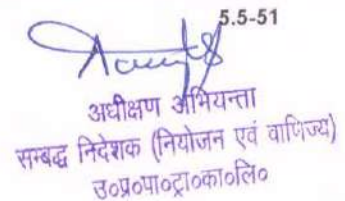 5.5-51
अधीक्षण अभियन्ता
सम्बद्ध निदेशक (नियोजन एवं वाणिज्य)
उ०प्र०पा०ट्रा०का०लि०